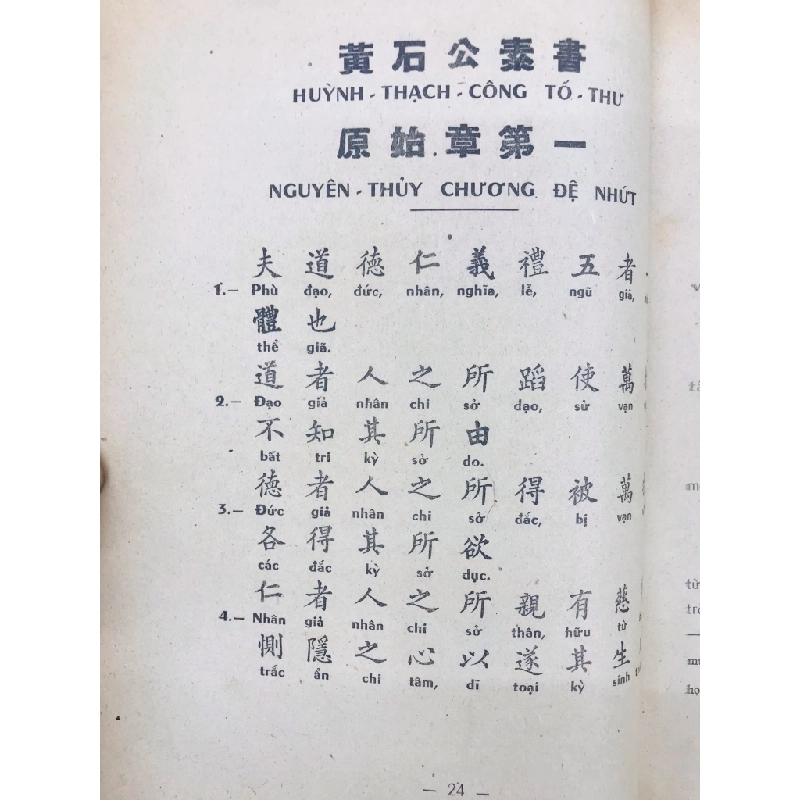 黃石公素書
HUỲNH - THẠCH - CÔNG TỐ - THƯ
原始章第一
NGUYÊN - THỦY CHƯƠNG ĐỆ NHỨT
夫道德仁義禮五者
1.— Phù đạo, đức, nhân, nghĩa, lễ, ngũ giả,
體也
thể giã.
道者人之所蹈使萬
2.— Đạo giả nhân chi sở dạo, sử vạn
不知其所由
bất tri kỳ sở do.
德者人之所得被萬
3.— Đức giả nhân chi sở đắc, bị vạn
各得其所欲
các đắc kỳ sở dục.
仁者人之所親有慈
4.— Nhân giả nhân chi sở thân, hữu từ
惻隱之心以遂其生
trắc ẩn chi tâm, dĩ toại kỳ sinh
— 24 —